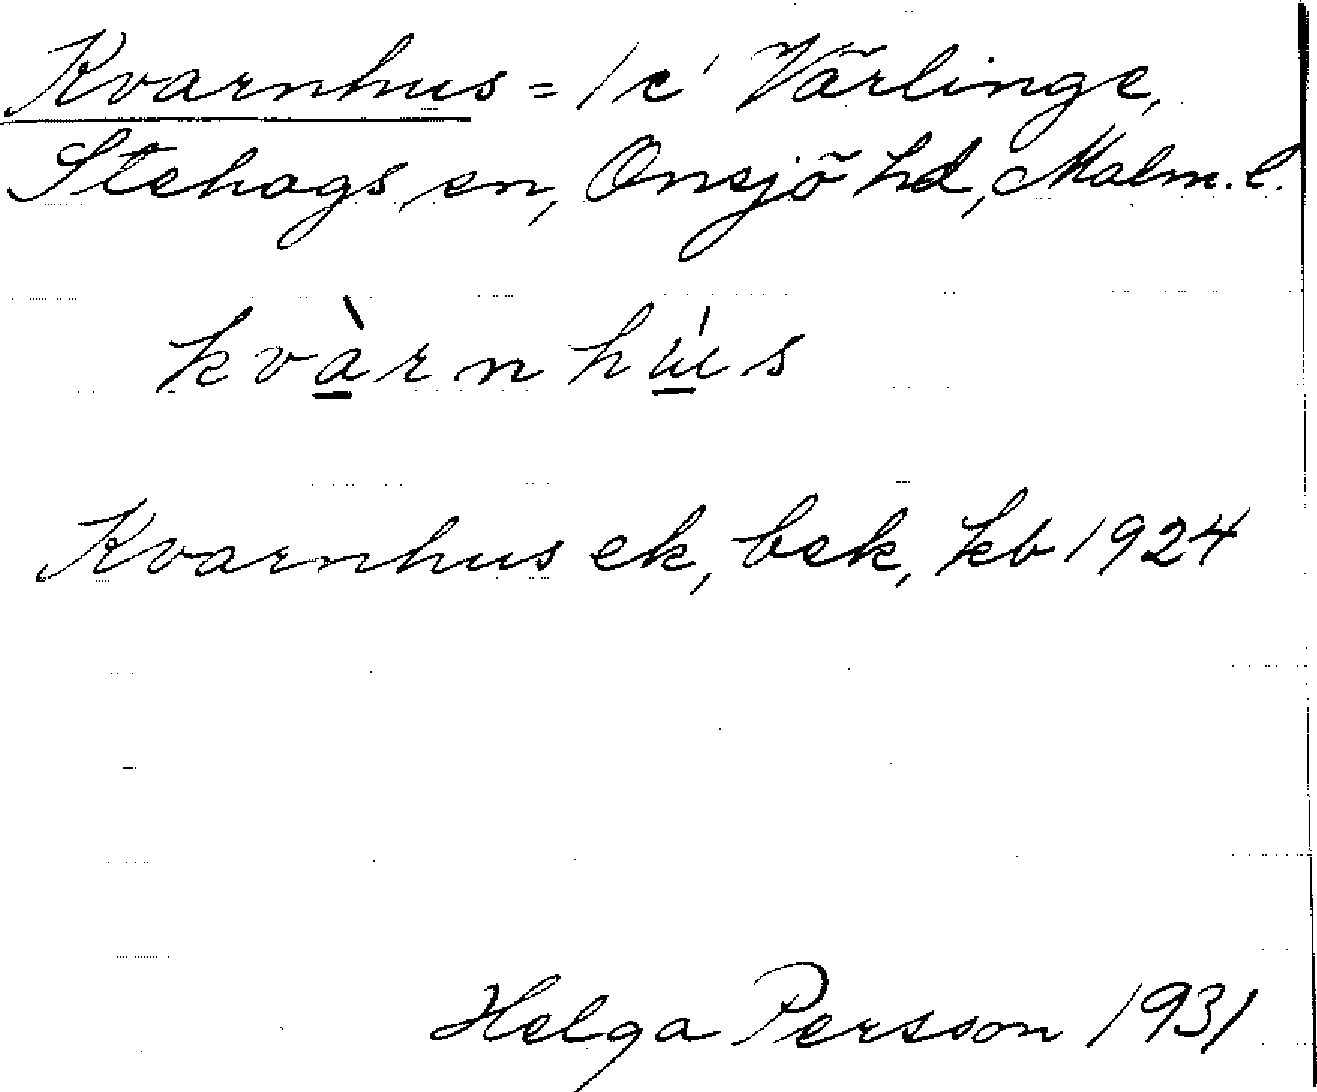 Kvarnhus = 1c' Värlinge,
Stehags sn, Onsjö hd, Malm. l.
kvàrnhús
Kvarnhus ek, bek, kb 1924
Helga Persson 1931